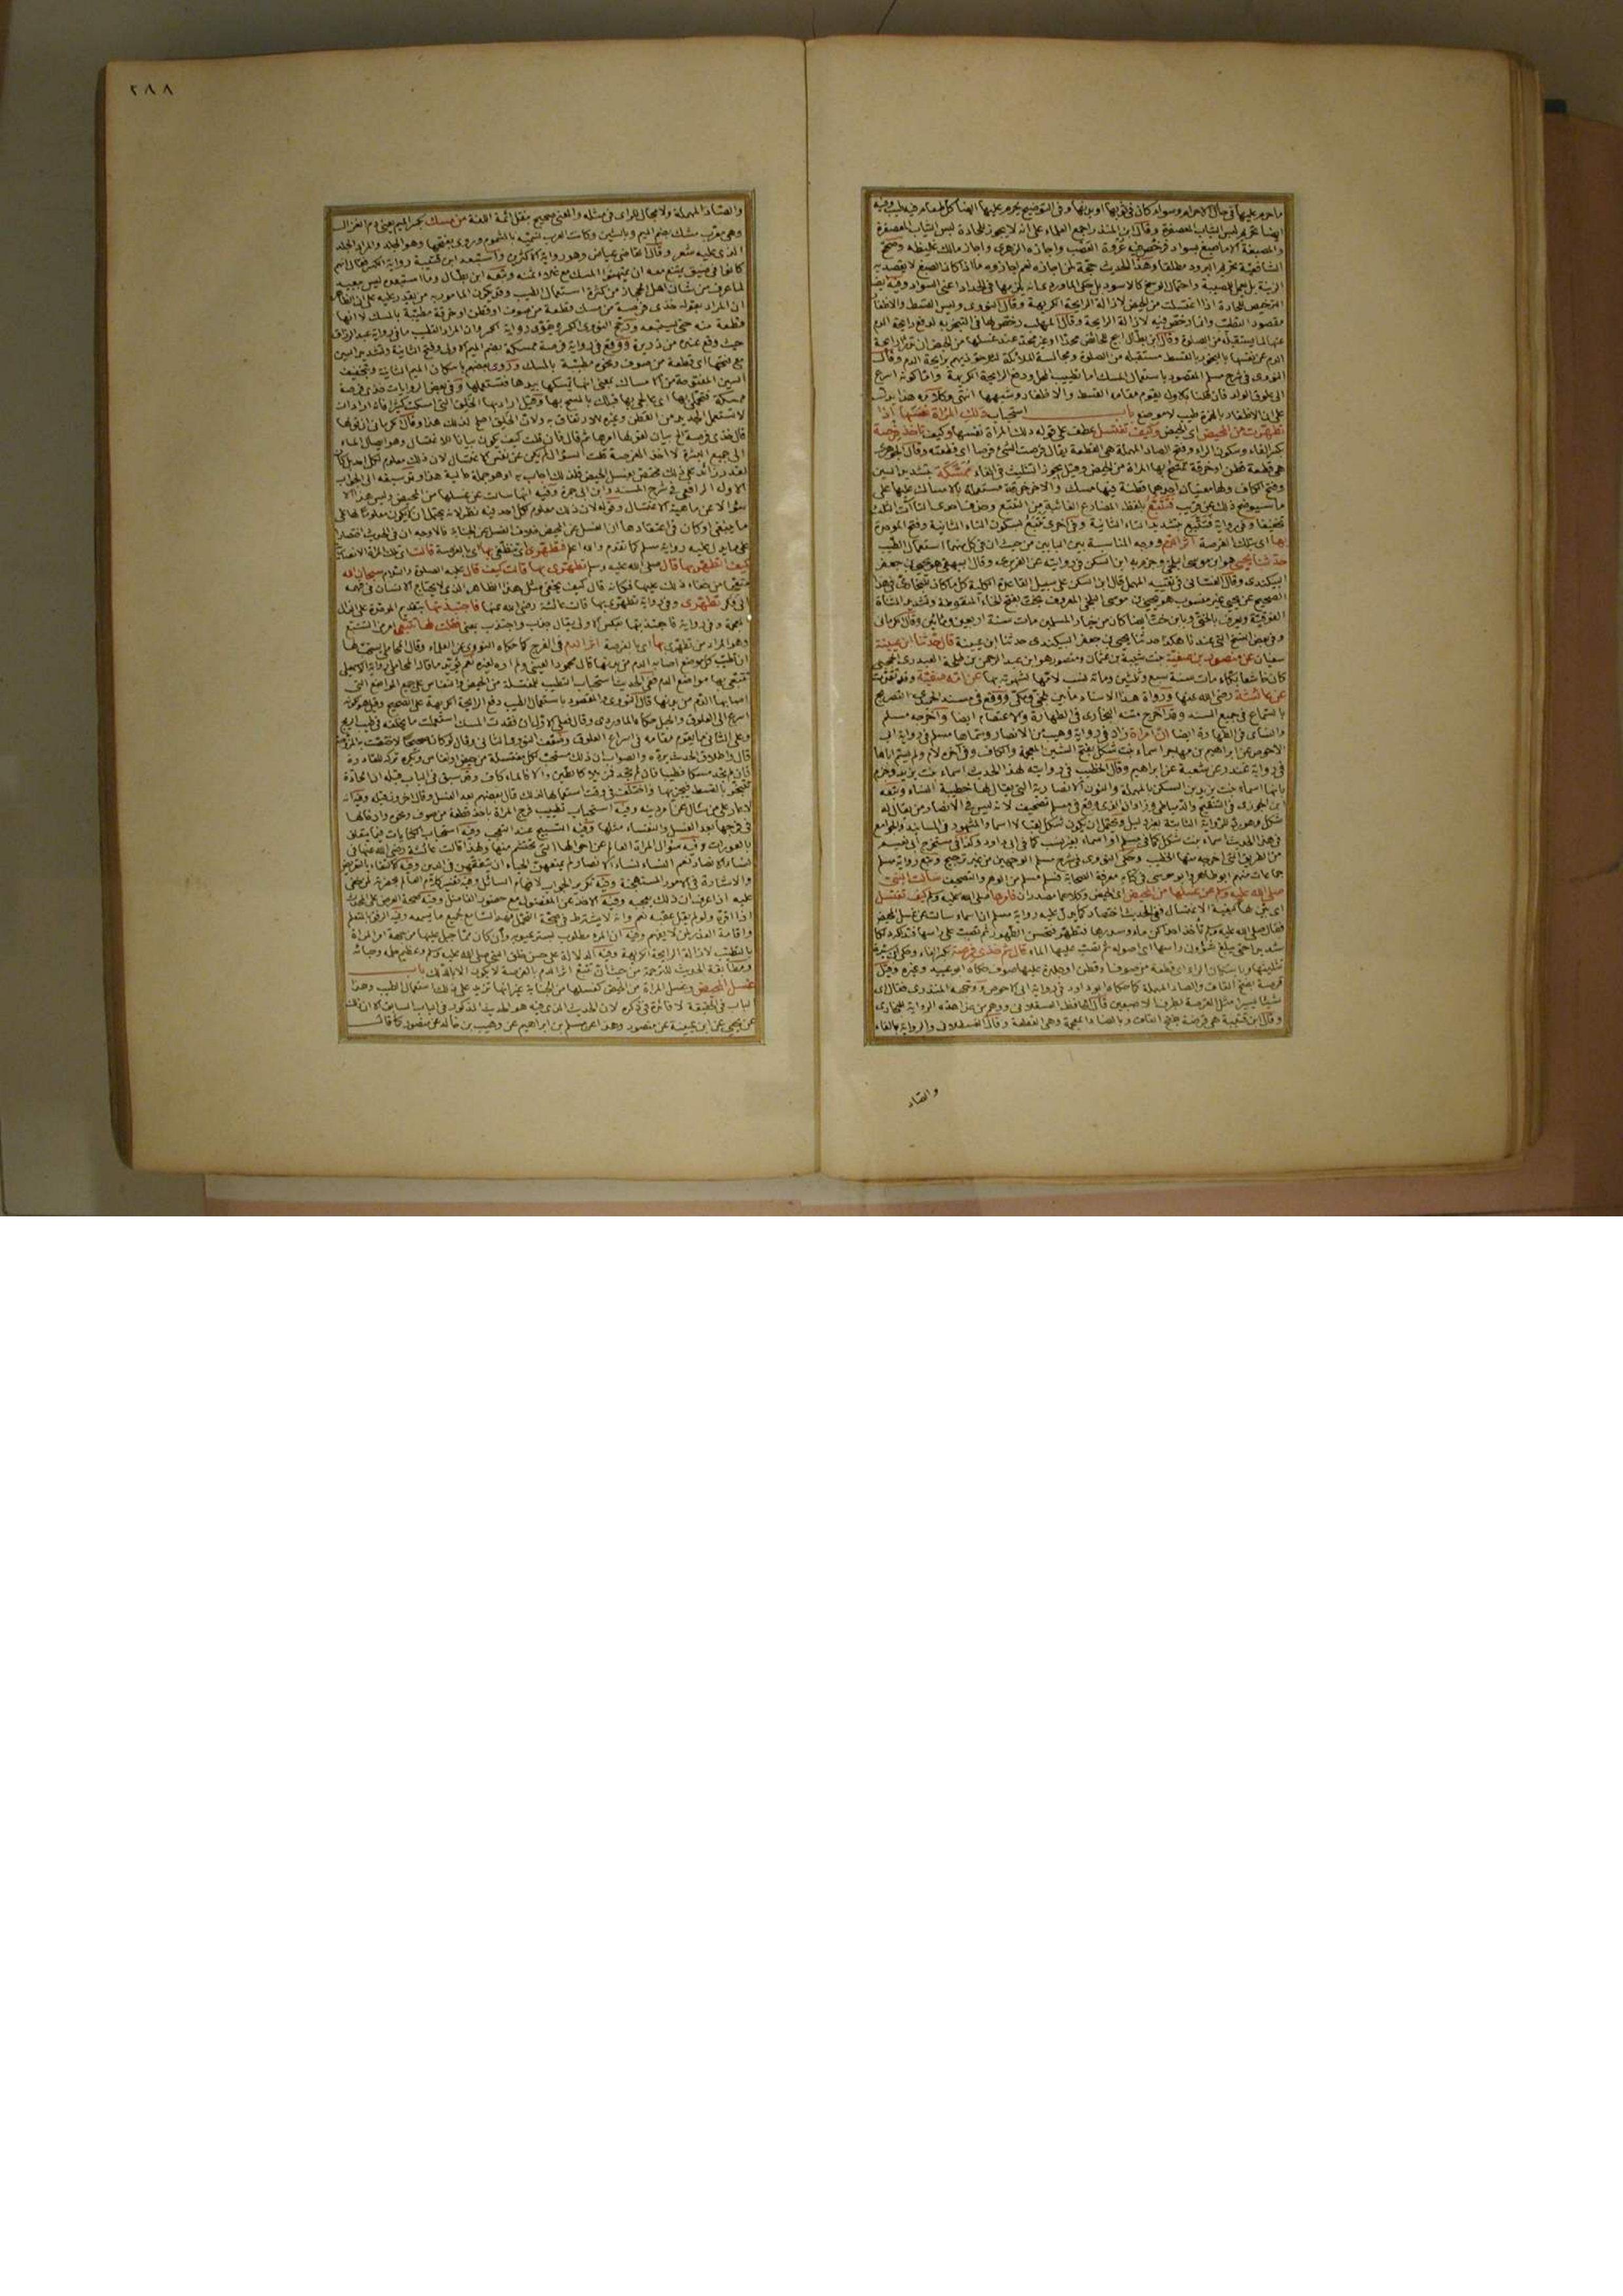 ما حرم عليها في حال
ايضا تحريم لبس الثياب المعصفرة وقال ابن المنذر اجمع العلماء على انه لا يجوز للحادة لبس الثياب المعصفرة
والمصبغة الا ما صبغ بسواد فرخص فيه عروة العصب واجازه الزهري واجاز مالك غليظه وصحح
الشافعية تحريم البرود مطلقا وهذا الحديث حجة لمن اجازه
الترخيص للحادة اذا اغتسلت من الحيض لازالة الرايحة الكريهة وقال النووي وليس القسط والاظفار
مقصود التطيب وانما رخص فيه لازالة الرايحة وقال المهلب رخص لها في التبخر به لدفع رايحة الدم
عنها لما يستقبله من الصلوة وقال ابن بطال ابيح للحائض محدا او غير محد عند غسلها من الحيض ان تدرأ رايحة
الدم عن نفسها بالبخور بالقسط مستقبله من الصلوة ومجالسة الملائكة لئلا تؤذيهم برايحة الدم وقال
النووي في شرح مسلم المقصود باستعمال المسك اما تطييب المحل ودفع الرايحة الكريهة واما كونه اسرع
الى علوق الولد فان قلنا بالاول يقوم مقامه القسط والاظفار وشبههما انتهى وكلامه هذا يدل
على ان الاظفار بالهمزة طيب لا موضع باب استحباب دلك المرأة نفسها اذا
تطهرت من المحيض اى الحيض وكيف تغتسل عطف على قوله دلك المرأة نفسها وكيف تأخذ فرصة
بكسر الفاء وسكون الراء وفتح الصاد المهملة هى القطعة يقال فرصت الشئ فرصا اى قطعته وقال الجوهرى
هى قطعة قطن او خرقة تمسح بها المرأة من الحيض وقيل يجوز التثليث فى الفاء ممسكة بتشديد السين
وفتح الكاف ولها معنيان احدهما قطنة فيها مسك والآخر خرقة مستعملة بالامساك عليها على
ما سيوضح ذلك عن قريب فتتبع بلفظ المضارع الغائبة من التتبع وحذف احدى التاآت الثلاث
تخفيفا وفى رواية فتتبع بتشديد التاء الثانية وفى اخرى تتبع بسكون التاء الثانية وفتح الموحدة
بها اى بتلك الفرصة اثر الدم ووجه المناسبة بين البابين من حيث ان فى كل منهما استعمال الطيب
حدثنا يحيى هو ابن موسى البلخى وجزم به ابن السكن فى روايته عن الفربرى وقال البيهقى هو يحيى بن جعفر
البيكندى وقال الغسانى فى تقييد المهمل قال ابن السكن على سبيل القاعدة الكلية كل ما كان للبخارى فى هذا
الصحيح عن يحيى غير منسوب هو يحيى بن موسى البلخى المعروف بخت بفتح الخاء المنقوطة وتشديد المثناة
الفوقية ويعرف بالختى وبابن خت ايضا كان من خيار المسلمين مات سنة اربعين ومائتين وقال الكرمانى
وفى بعض النسخ التى عندنا هكذا حدثنا يحيى بن جعفر البيكندى حدثنا ابن عيينة قال حدثنا ابن عيينة
سفيان عن منصور بن صفية بنت شيبة بن عثمان ومنصور هو ابن عبد الرحمن بن طلحة العبدرى الحجبى
كان خاشعا بكاء مات سنة سبع وثلثين ومائة نسب لامها لشهرته بها عن امه صفية
عن عائشة رضى الله عنها ورواة هذا الاسناد ما بين بلخى ومكى ووقع فى مسند الحميدى التصريح
بالسماع فى جميع السند وقد اخرج متنه البخارى فى الطهارة والاعتصام ايضا واخرجه مسلم
والنسائى فى الطهارة ايضا ان امرأة زاد فى رواية وهيب من الانصار وسماها مسلم فى رواية ابى
الاحوص عن ابراهيم بن مهاجر اسماء بنت شكل بفتح الشين المعجمة والكاف وفى آخره لام ولم يسم اباها
فى رواية غندر عن شعبة عن ابراهيم وقال الخطيب فى روايته لهذا الحديث اسماء بنت يزيد وجزم
بانها اسماء بنت يزيد بن السكن بالمهملة والنون الانصارية التى يقال لها خطيبة النساء وتبعه
ابن الجوزى فى التنقيح والدمياطى وزاد ان الذى وقع فى مسلم تصحيف لانه ليس فى الانصار من يقال له
شكل وهو رد للرواية الثابتة بغير دليل ويحتمل ان يكون شكل لقبا لا اسما والمشهور فى المسانيد والجوامع
فى هذا الحديث اسماء بنت شكل كما فى مسلم او اسماء بغير نسب كما فى ابى داود وكذا فى مستخرج ابى نعيم
من الطريق التى اخرجه منها الخطيب وحكى النووى فى شرح مسلم الوجهين من غير ترجيح وتبع رواية مسلم
جماعات منهم ابو طاهر وابو موسى فى كتابه معرفة الصحابة فسلم مسلم من الوهم والتصحيف سالت النبى
صلى الله عليه وسلم عن غسلها من المحيض اى الحيض وكلاهما مصدران فامرها صلى الله عليه وسلم كيف تغتسل
اى بين لها كيفية الاغتسال ففى الحديث اختصار كما يدل عليه رواية مسلم ان اسماء سالت عن غسل المحيض
فقال صلى الله عليه وسلم تأخذ احداكن ماءها وسدرها فتطهر فتحسن الطهور ثم تصب على رأسها فتدلكه دلكا
شديدا حتى يبلغ شؤون راسها اى اصوله ثم تصب عليها الماء قال ثم خذى فرصة بكسر الفاء
تثليثها وباسكان الراء اى قطعة من صوف او قطن او جلدة عليها صوف حكاه ابو عبيد وغيره وقيل
قرصة بفتح القاف والصاد المهملة كما حكاه ابو داود فى رواية ابى الاحوص ووجهه المنذرى فقال اى
شيئا يسيرا مثل القرصة بطرف الاصبعين قال الحافظ العسقلانى ووهم من عزا هذه الرواية للبخارى
وقال ابن قتيبة هى قرضة بفتح القاف وبالضاد المعجمة وهى القطعة
والصاد
٢٨٨
والصاد المهملة ولا مجال للراى فى مثله والمعنى صحيح بنقل ائمة اللغة من مسك بكسر الميم يعنى دم الغزال
وهى معرب مشك بضم الميم وبالشين وكانت العرب تسميه بالمشموم وروى بفتحها وهو الجلد والمراد الجلد
الذى عليه شعر وقال القاضى عياض وهو رواية الاكثرين واستبعد ابن قتيبة رواية الكسر فقال انهم
كانوا فى ضيق يمتنع معه ان يمتهنوا المسك مع غلاء ثمنه وتبعه ابن بطال وما استبعده ليس ببعيد
لما عرف من شأن اهل الحجاز من كثرة استعمال الطيب وقد يكون المأمور به من يقدر عليه
ان المراد بقوله خذى فرصة من مسك قطعة من صوف او قطن او خرقة مطيبة بالمسك لا انها
قطعة منه حتى يستبعد ورجح النووى الكسر ويقوى رواية الكسر وان المراد التطيب ما فى رواية عبد الرزاق
حيث وقع عنده من ذريرة ووقع فى رواية فرصة ممسكة بضم الميم الاولى وفتح الثانية وتشديد السين
مع فتحها اى قطعة من صوف ونحوه مطيبة بالمسك وروى بعضهم باسكان الميم الثانية وتخفيف
السين المفتوحة من الامساك بمعنى انها تمسكها بيدها فتستعملها وفى بعض الروايات خذى فرصة
ممسكة
لا تستعمل الجديد من القطن وغيره للارتفاق به ولان الخلق اصلح لذلك
قال خذى فرصة الخ بيان لقولها امرها
الى جميع البشرة لا اخذ الفرصة قلت السؤال لم يكن عن نفس الاغتسال لان ذلك معلوم لكل احد بل كان
لقدر زائد على ذلك مختص بغسل الحيض فلذلك اجاب به او هو جملة حالية
الاول الرافعى فى شرح المسند وابن ابى جمرة وفيه انها سالت عن غسلها من المحيض وليس هذا الا
سؤالا عن ماهية الاغتسال وقوله لان ذلك معلوم لكل احد فيه نظر لانه يحتمل ان يكون معلوما لها على
ما ينبغى او كان فى اعتقادها ان الغسل عن المحيض خلاف الغسل عن الجنابة فالاوجه ان فى الحديث اختصارا
على ما يدل عليه رواية مسلم كما تقدم والله اعلم فتطهرى اى تنظفى بها اى بالفرصة قالت
كيف اتطهر بها قال صلى الله عليه وسلم تطهرى بها قالت كيف قال عليه الصلوة والسلام سبحان الله
متعجبا من خفاء ذلك عليها فكانه قال كيف يخفى مثل هذا الظاهر الذى لا يحتاج الانسان فى فهمه
الى فكر تطهرى وفى رواية تطهرى بها قالت عائشة رضى الله عنها فاجتبذتها بتقديم الموحدة على الذال
المعجمة وفى رواية فاجتذبتها عكس الاولى يقال جذب واجتذب بمعنى فقلت لها تتبعى امر من التتبع
وهو المراد من تطهرى بها اى بالفرصة اثر الدم فى الفرج كما حكاه النووى عن العلماء وقال المحاملى يستحب لها
ان تطيب كل موضع اصابه الدم من بدنها
تتبعى بها مواضع الدم ففى الحديث استحباب التطيب للمغتسلة من الحيض والنفاس على جميع المواضع التى
اصابها الدم من بدنها قال النووى والمقصود باستعمال الطيب دفع الرايحة الكريهة على الصحيح وقيل هو كونه
اسرع الى العلوق والحبل حكاه الماوردى وقال فعلى الاول ان فقدت المسك استعملت ما يخلفه فى طيب الريح
وعلى الثانى ما يقوم مقامه فى اسراع العلوق وضعف النووى الثانى وقال لو كان صحيحا لاختصت به المزوجة
قال واطلاق الحديث يرده والصواب ان ذلك مستحب لكل مغتسلة من حيض او نفاس ويكره تركه للقادرة
فان لم تجد مسكا فطيبا فان لم تجد فمزيلا كالطين والا فالماء كاف وقد سبق فى الباب قبله ان الحادة
تتبخر بالقسط فيجزيها واختلف فى وقت استعمالها لذلك قال بعضهم بعد الغسل وقال آخرون قبله وفيه انه
لا عار على من سأل عن امر دينه وفيه استحباب تطييب فرج المرأة باخذ قطعة من صوف ونحوه وادخالها
فى فرجها بعد الغسل والنفساء مثلها وفيه التسبيح عند التعجب وفيه استحباب الكنايات فيما يتعلق
بالعورات وفيه سؤال المرأة العالم عن احوالها التى تحتشم منها ولهذا قالت عائشة رضى الله عنها فى
نساء الانصار نعم النساء نساء الانصار لم يمنعهن الحياء ان يتفقهن فى الدين وفيه الاكتفاء بالتعريض
والاشارة فى الامور المستهجنة وفيه تكرير الجواب لافهام السائل وفيه تفسير كلام العالم بحضرته لمن خفى
عليه اذا عرف ان ذلك يعجبه وفيه الاخذ عن المفضول مع حضور الفاضل وفيه صحة العرض على المحدث
اذا اقره ولو لم يقل عقيبه نعم وانه لا يشترط فى صحة التحمل فهم السامع لجميع ما يسمعه وفيه الرفق بالمتعلم
واقامة العذر لمن لا يفهم وفيه ان المرء مطلوب بستر عيوبه وان كان مما جبل عليها من جهة امر المرأة
بالتطيب لازالة الرايحة الكريهة وفيه الدلالة على حسن خلق النبى صلى الله عليه وسلم وعظيم حلمه وحيائه
ومطابقة الحديث للترجمة من حيث ان تتبع اثر الدم بالفرصة لا يكون الا بالدلك باب
غسل المحيض وغسل المرأة من الحيض كغسلها من الجنابة غير انها تزيد على ذلك استعمال الطيب وهذا
الباب فى الحقيقة لا فائدة فى ذكره لان الحديث الذى فيه هو الحديث المذكور فى الباب السابق
عن يحيى عن ابن عيينة عن منصور وهذا عن مسلم بن ابراهيم عن وهيب بن خالد عن منصور